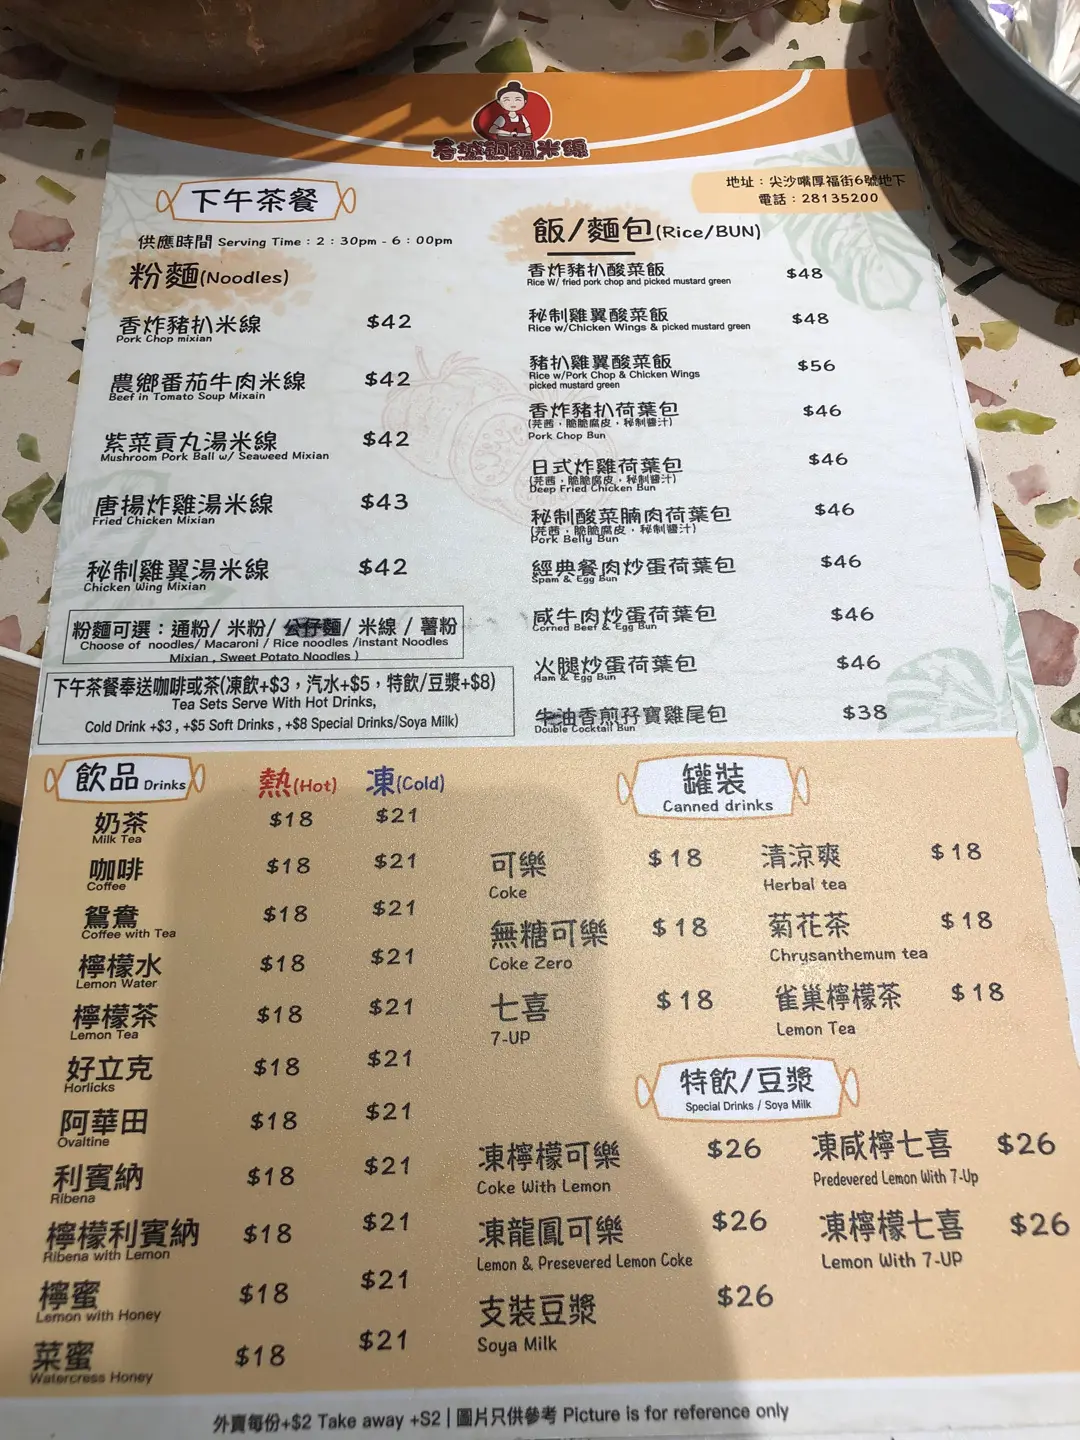 春城銅鍋米線
地址：尖沙嘴厚福街6號地下
電話：28135200
下午茶餐
供應時間 Serving Time：2：30pm - 6：00pm
粉麵(Noodles)
香炸豬扒米線 $42
Pork Chop mixian
農鄉番茄牛肉米線 $42
Beef in Tomato Soup Mixain
紫菜貢丸湯米線 $42
Mushroom Pork Ball w/ Seaweed Mixian
唐揚炸雞湯米線 $43
Fried Chicken Mixian
秘制雞翼湯米線 $42
Chicken Wing Mixian
粉麵可選：通粉/ 米粉/ 公仔麵/ 米線 / 薯粉
Choose of noodles/ Macaroni / Rice noodles /instant Noodles
Mixian , Sweet Potato Noodles )
下午茶餐奉送咖啡或茶(凍飲+$3，汽水+$5，特飲/豆漿+$8)
Tea Sets Serve With Hot Drinks,
Cold Drink +$3 , +$5 Soft Drinks , +$8 Special Drinks/Soya Milk)
飯/麵包(Rice/BUN)
香炸豬扒酸菜飯 $48
Rice W/ fried pork chop and picked mustard green
秘制雞翼酸菜飯 $48
Rice w/Chicken Wings & picked mustard green
豬扒雞翼酸菜飯 $56
Rice w/Pork Chop & Chicken Wings
picked mustard green
香炸豬扒荷葉包 $46
(芫茜，脆脆腐皮，秘制醬汁)
Pork Chop Bun
日式炸雞荷葉包 $46
(芫茜，脆脆腐皮，秘制醬汁)
Deep Fried Chicken Bun
秘制酸菜腩肉荷葉包 $46
(芫茜，脆脆腐皮，秘制醬汁)
Pork Belly Bun
經典餐肉炒蛋荷葉包 $46
Spam & Egg Bun
咸牛肉炒蛋荷葉包 $46
Corned Beef & Egg Bun
火腿炒蛋荷葉包 $46
Ham & Egg Bun
牛油香煎孖寶雞尾包 $38
Double Cocktail Bun
飲品 Drinks 熱(Hot) 凍(Cold)
奶茶 $18 $21
Milk Tea
咖啡 $18 $21
Coffee
鴛鴦 $18 $21
Coffee with Tea
檸檬水 $18 $21
Lemon Water
檸檬茶 $18 $21
Lemon Tea
好立克 $18 $21
Horlicks
阿華田 $18 $21
Ovaltine
利賓納 $18 $21
Ribena
檸檬利賓納 $18 $21
Ribena with Lemon
檸蜜 $18 $21
Lemon with Honey
菜蜜 $18 $21
Watercress Honey
罐裝
Canned drinks
可樂 $18
Coke
無糖可樂 $18
Coke Zero
七喜 $18
7-UP
清涼爽 $18
Herbal tea
菊花茶 $18
Chrysanthemum tea
雀巢檸檬茶 $18
Lemon Tea
特飲/豆漿
Special Drinks / Soya Milk
凍檸檬可樂 $26
Coke With Lemon
凍龍鳳可樂 $26
Lemon & Presevered Lemon Coke
支裝豆漿 $26
Soya Milk
凍咸檸七喜 $26
Predevered Lemon With 7-Up
凍檸檬七喜 $26
Lemon With 7-UP
外賣每份+$2 Take away +S2 | 圖片只供參考 Picture is for reference only